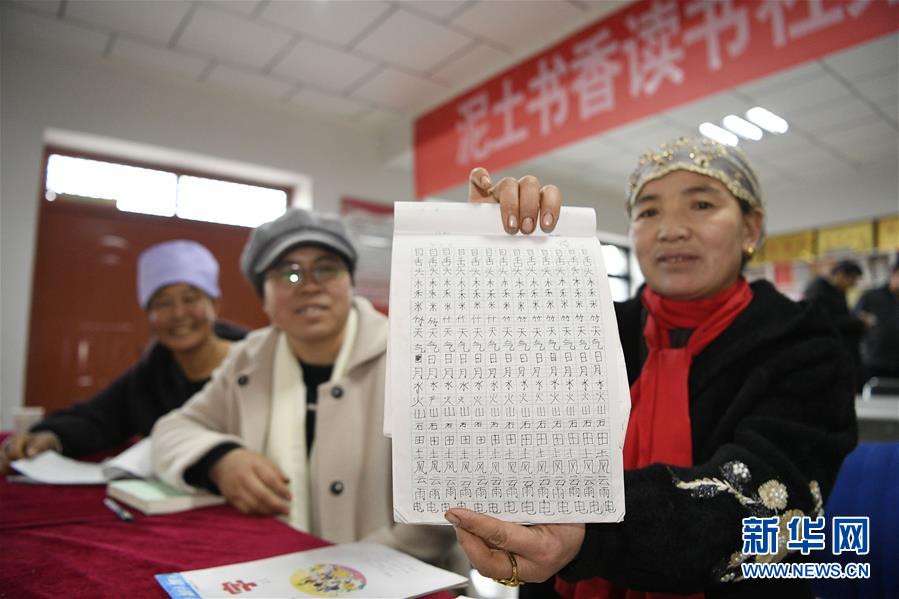 泥土书香读书社
竹竹竹竹竹竹竹竹竹竹竹竹竹
天天天天天天天天天天天天天
气气气气气气气气气气气气气
日日日日日日日日日日日日日
月月月月月月月月月月月月月
水水水水水水水水水水水水水
火火火火火火火火火火火火火
山山山山山山山山山山山山山
石石石石石石石石石石石石石
田田田田田田田田田田田田田
土土土土土土土土土土土土土
风风风风风风风风风风风风风
云云云云云云云云云云云云云
雨雨雨雨雨雨雨雨雨雨雨雨雨
电电电电电电电电电电电电电
字
新华网
WWW.NEWS.CN